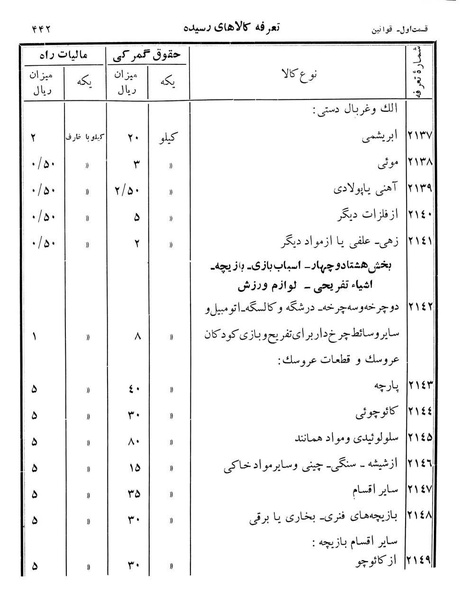 قسمت اول- قوانین تعرفه کالاهای رسیده ۴۴۲
شمارهٔ تعرفه نوع کالا حقوق گمرکی مالیات راه
یکه میزان ریال یکه میزان ریال
الك وغربال دستی:
۲۱۳۷ ابریشمی کیلو ۲۰ کیلو با ظرف ۲
۲۱۳۸ موئی » ۳ » ۰/۵۰
۲۱۳۹ آهنی یاپولادی » ۲/۵۰ » ۰/۵۰
۲۱٤۰ ازفلزات دیگر » ۵ » ۰/۵۰
۲۱٤۱ زهی- علفی یا ازمواد دیگر » ۲ » ۰/۵۰
بخش هشتادوچهار- اسباب بازی- بازیچه-
اشیاء تفریحی - لوازم ورزش
۲۱٤۲ دوچرخه وسه چرخه- درشگه و کالسگه- اتومبیل و
سایر وسائط چرخ دار برای تفریح و بازی کودکان » ۸ » ۱
عروسك و قطعات عروسك:
۲۱٤۳ پارچه » ٤۰ » ۵
۲۱٤٤ کائوچوئی » ۳۰ » ۵
۲۱٤۵ سلولوئیدی ومواد همانند » ۸۰ » ۵
۲۱٤۶ ازشیشه - سنگی- چینی وسایر مواد خاکی » ۱۵ » ۵
۲۱٤۷ سایر اقسام » ۳۵ » ۵
۲۱٤۸ بازیچه‌های فنری- بخاری یا برقی » ۳۰ » ۵
سایر اقسام بازیچه:
۲۱٤۹ از کائوچو » ۳۰ » ۵